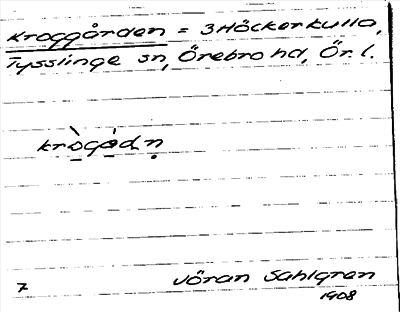 Kroggården = 3 Höckerkulla,
Tysslinge sn, Örebro hd, Ör. l.
krògádṇ
7 Jöran Sahlgren
1908